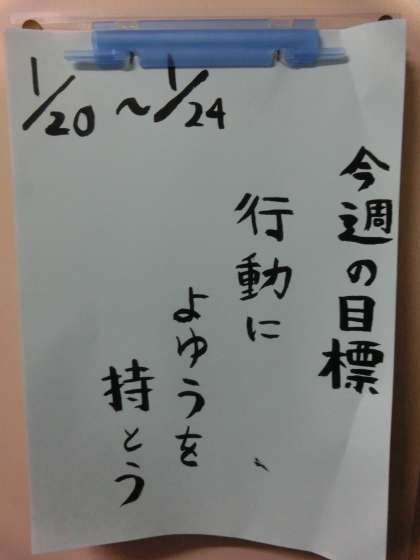 1/20〜1/24
今週の目標
行動に
よゆうを
持とう